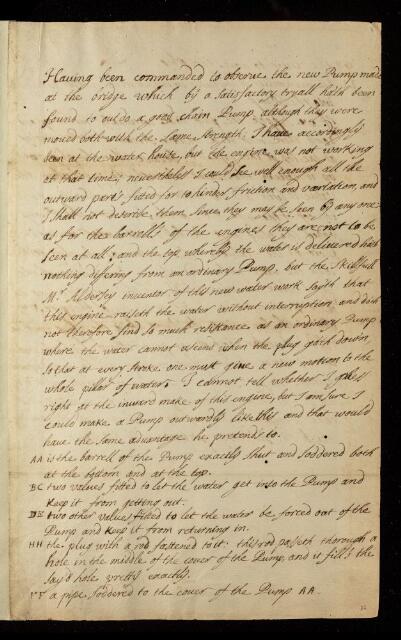 Having been commanded to observe the new Pump made
at the bridge which by a satisfactory tryall hath been
found to outdo a good chain Pump although they were
moved both with the same strength. I have accordingly
been at the water house, but the engine was not working
at that time; nevertheless I could see well enough all the
outward parts fitted for to hinder friction and vacilation, and
I shall not describe them since they may be seen by any one
as for the barrells of the engines they are not to be
seen at all; and the top whereby the water is delivered hath
nothing differing from an ordinary Pump. but the skillfull
Mr. Aldersey inventor of this new water work sayth that
this engine raiseth the water without interruption and doth
not therefore find so much resistance as an ordinary Pump
where the water cannot ascend when the plug goeth down
so that at every stroke one must give a new motion to the
whole pillar of water. I cannot tell whether I guess
right at the inward make of this engine, but I am sure I
could make a Pump outwardly like this and that would
have the same advantage he pretends to.
AA is the barrell of the Pump exactly shut and soddered both
at the bottom and at the top.
BC two valves fitted to let the water get into the Pump and
keep it from getting out.
DE two other valves fitted to let the water be forced out of the
Pump and keep it from returning in.
HH the plug with a rod fastened to it: this rod passeth thorough a
hole in the middle of the cover of the Pump, and it fills the
say'd hole pretty exactly.
FF a pipe soddered to the cover of the Pump AA.